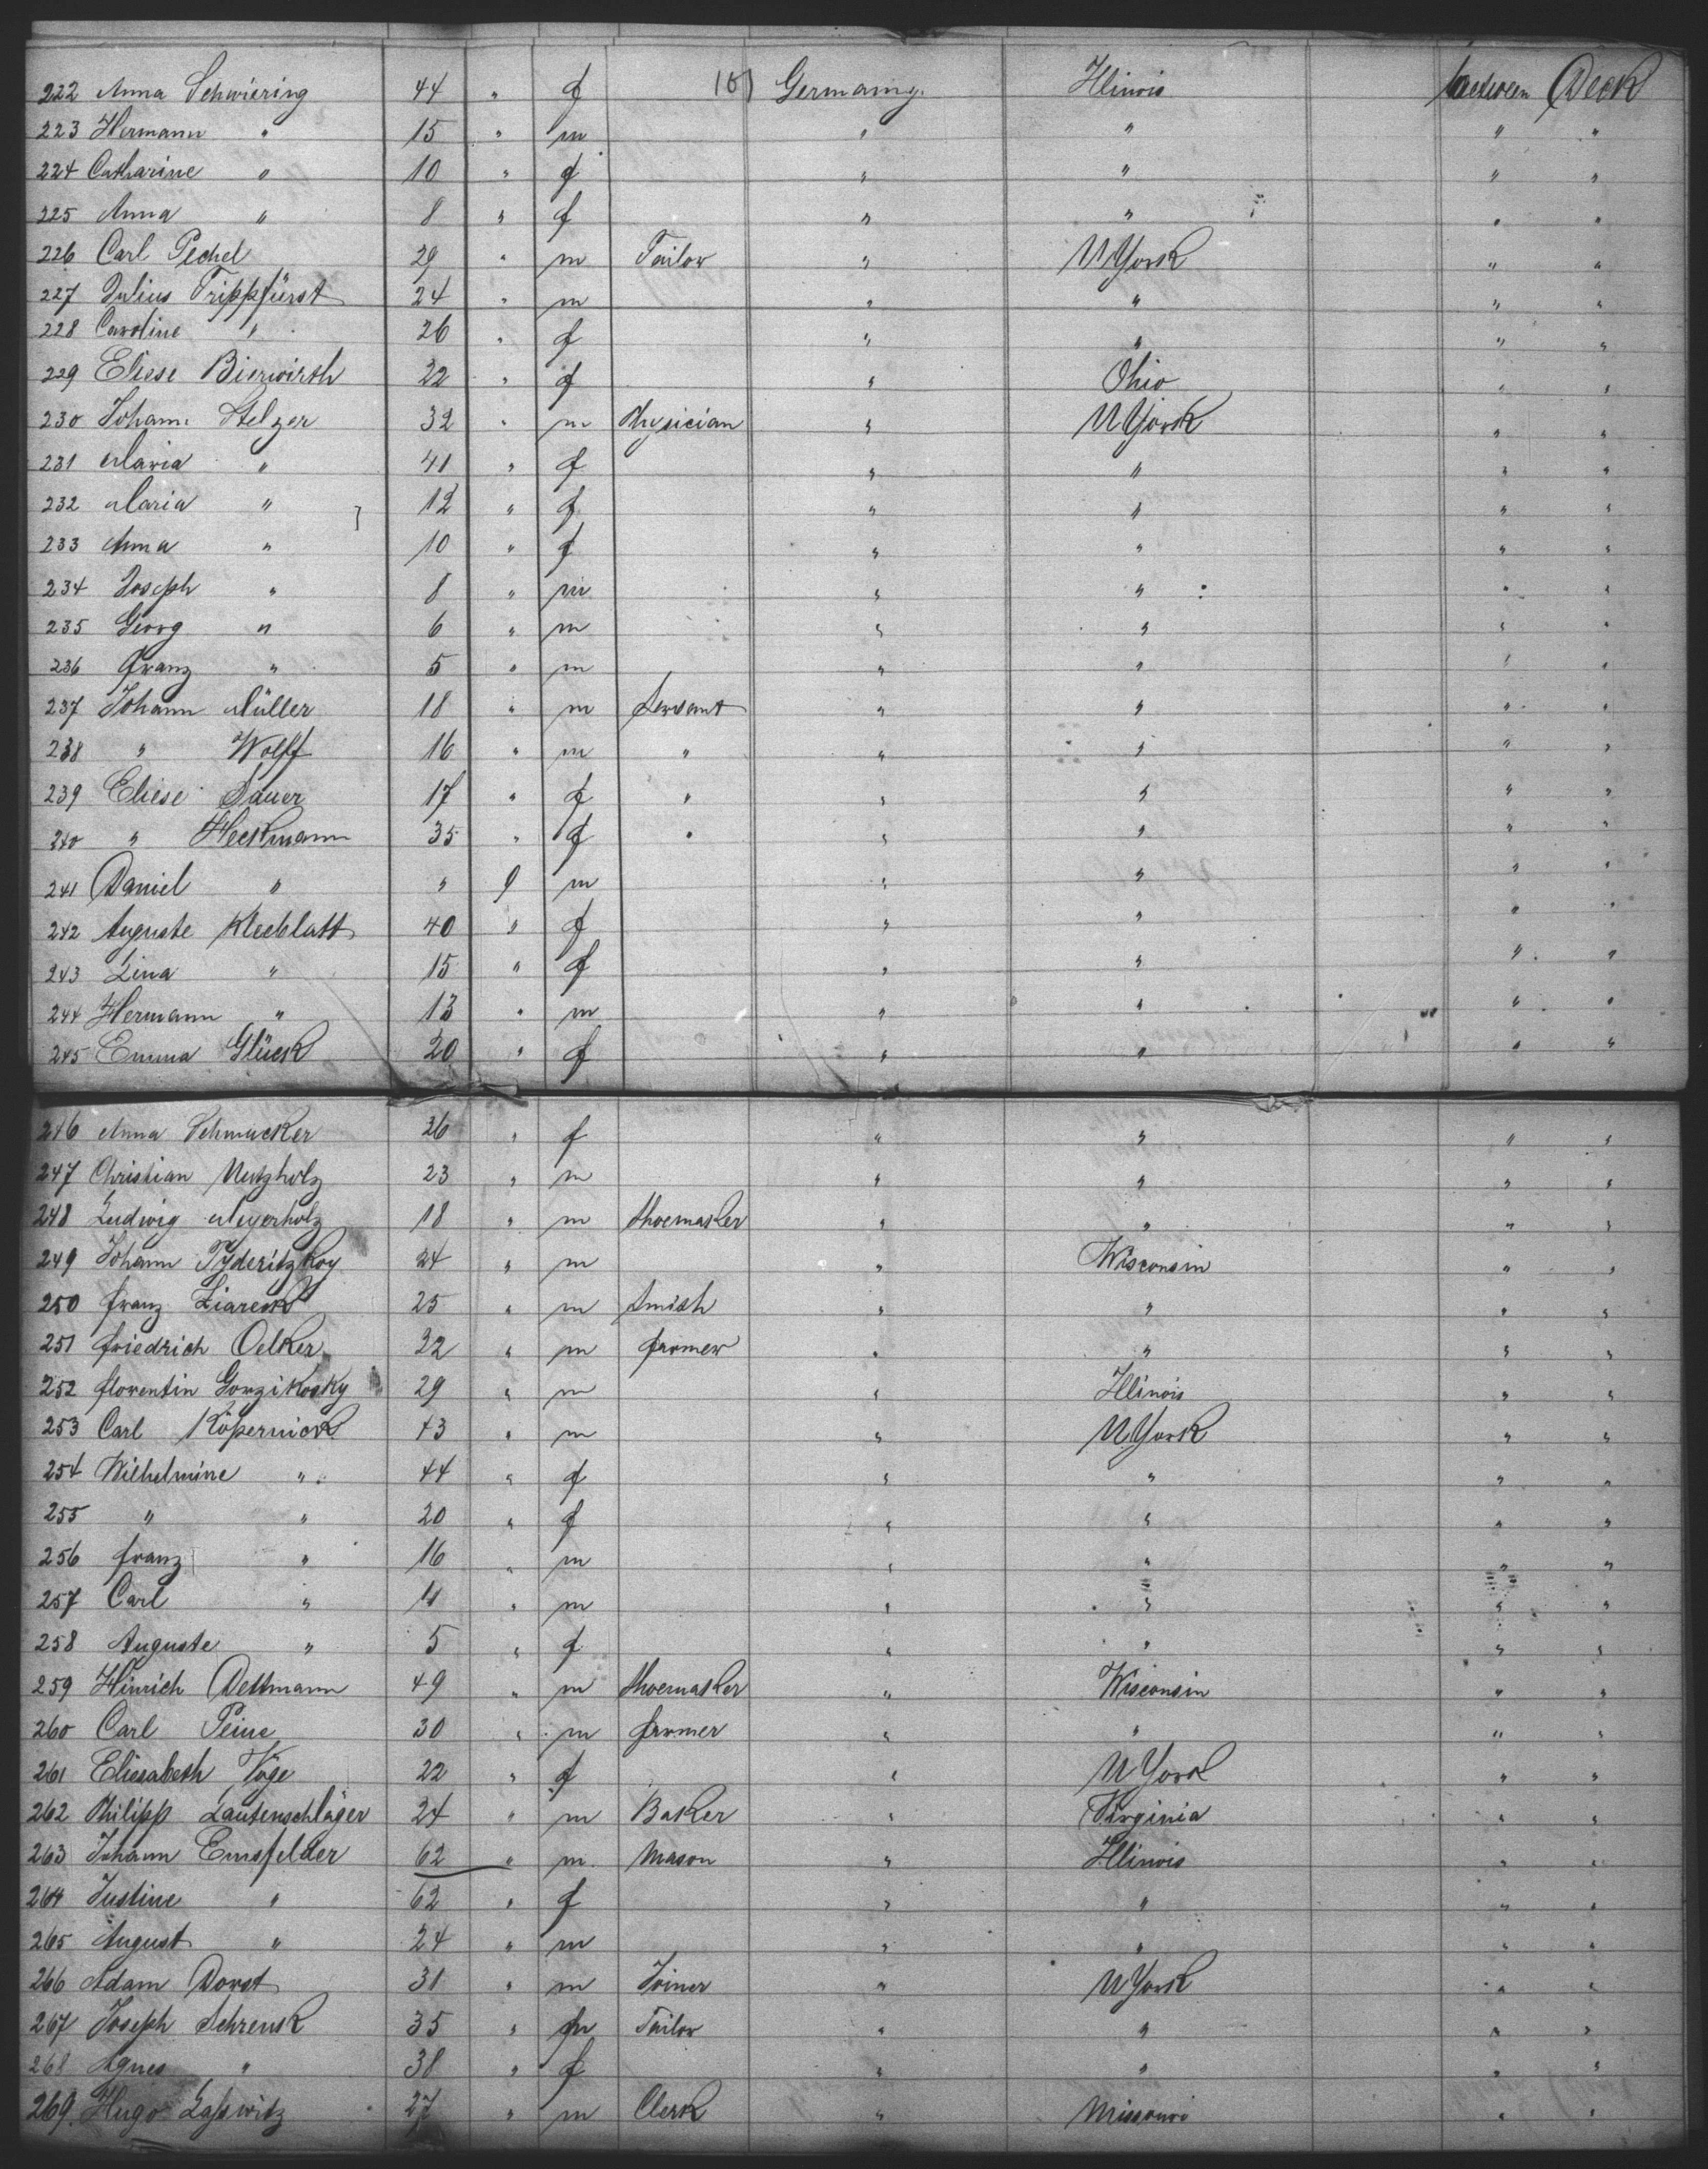 222 Anna Schwiering 44 " f 10) Germany. Illinois between Deck
223 Hermann " 15 " m " " " "
224 Catharine " 10 " f " " " "
225 Anna " 8 " f " " " "
226 Carl Pechel 29 " m Tailor " N York " "
227 Julius Trippfürst 24 " m " " " "
228 Caroline " 26 " f " " " "
229 Eliese Bierwirth 22 " f " Ohio " "
230 Johann Stelzer 32 " m Physician " N York " "
231 Maria " 41 " f " " " "
232 Maria " 12 " f " " " "
233 Anna " 10 " f " " " "
234 Joseph " 8 " m " " " "
235 Georg " 6 " m " " " "
236 Franz " 5 " m " " " "
237 Johann Müller 18 " m Servant " " " "
238 " Wolff 16 " m " " " " "
239 Eliese Sauer 17 " f " " " " "
240 " Heckmann 35 " f " " " " "
241 Daniel " " 9 m " " " "
242 Auguste Kleeblatt 40 " f " " " "
243 Lina " 15 " f " " " "
244 Hermann " 13 " m " " " "
245 Emma Glück 20 " f " " " "
246 Anna Schmucker 26 " f " " " "
247 Christian Nutzholz 23 " m " " " "
248 Ludwig Meyerholz 18 " m Shoemaker " " " "
249 Johann 24 " m " Wisconsin " "
250 Franz Ziareck 25 " m Smith " " " "
251 Friedrich Oelker 32 " m farmer " " " "
252 Florentin Gorzikosky 29 " m " Illinois " "
253 Carl Köpernick 43 " m " N. York " "
254 Wilhelmine " 44 " f " " " "
255 " " 20 " f " " " "
256 Franz " 16 " m " " " "
257 Carl " 11 " m " " " "
258 Auguste " 5 " f " " " "
259 Hinrich Dettmann 49 " m Shoemaker " Wisconsin " "
260 Carl Peine 30 " m farmer " " " "
261 Eliesabeth Vöge 22 " f " N York " "
262 Philipp Lautenschläger 24 " m Baker " Virginia " "
263 Johann Emsfelder 62 " m. Mason " Illinois " "
264 Justine " 62 " f " " " "
265 August " 24 " m " " " "
266 Adam Dorst 31 " m Joiner " N York " "
267 Joseph Schrenk 35 " m Tailor " " " "
268 Agnes " 38 " f " " " "
269. Hugo Lasswitz 27 " m Clerk " Missouri " "